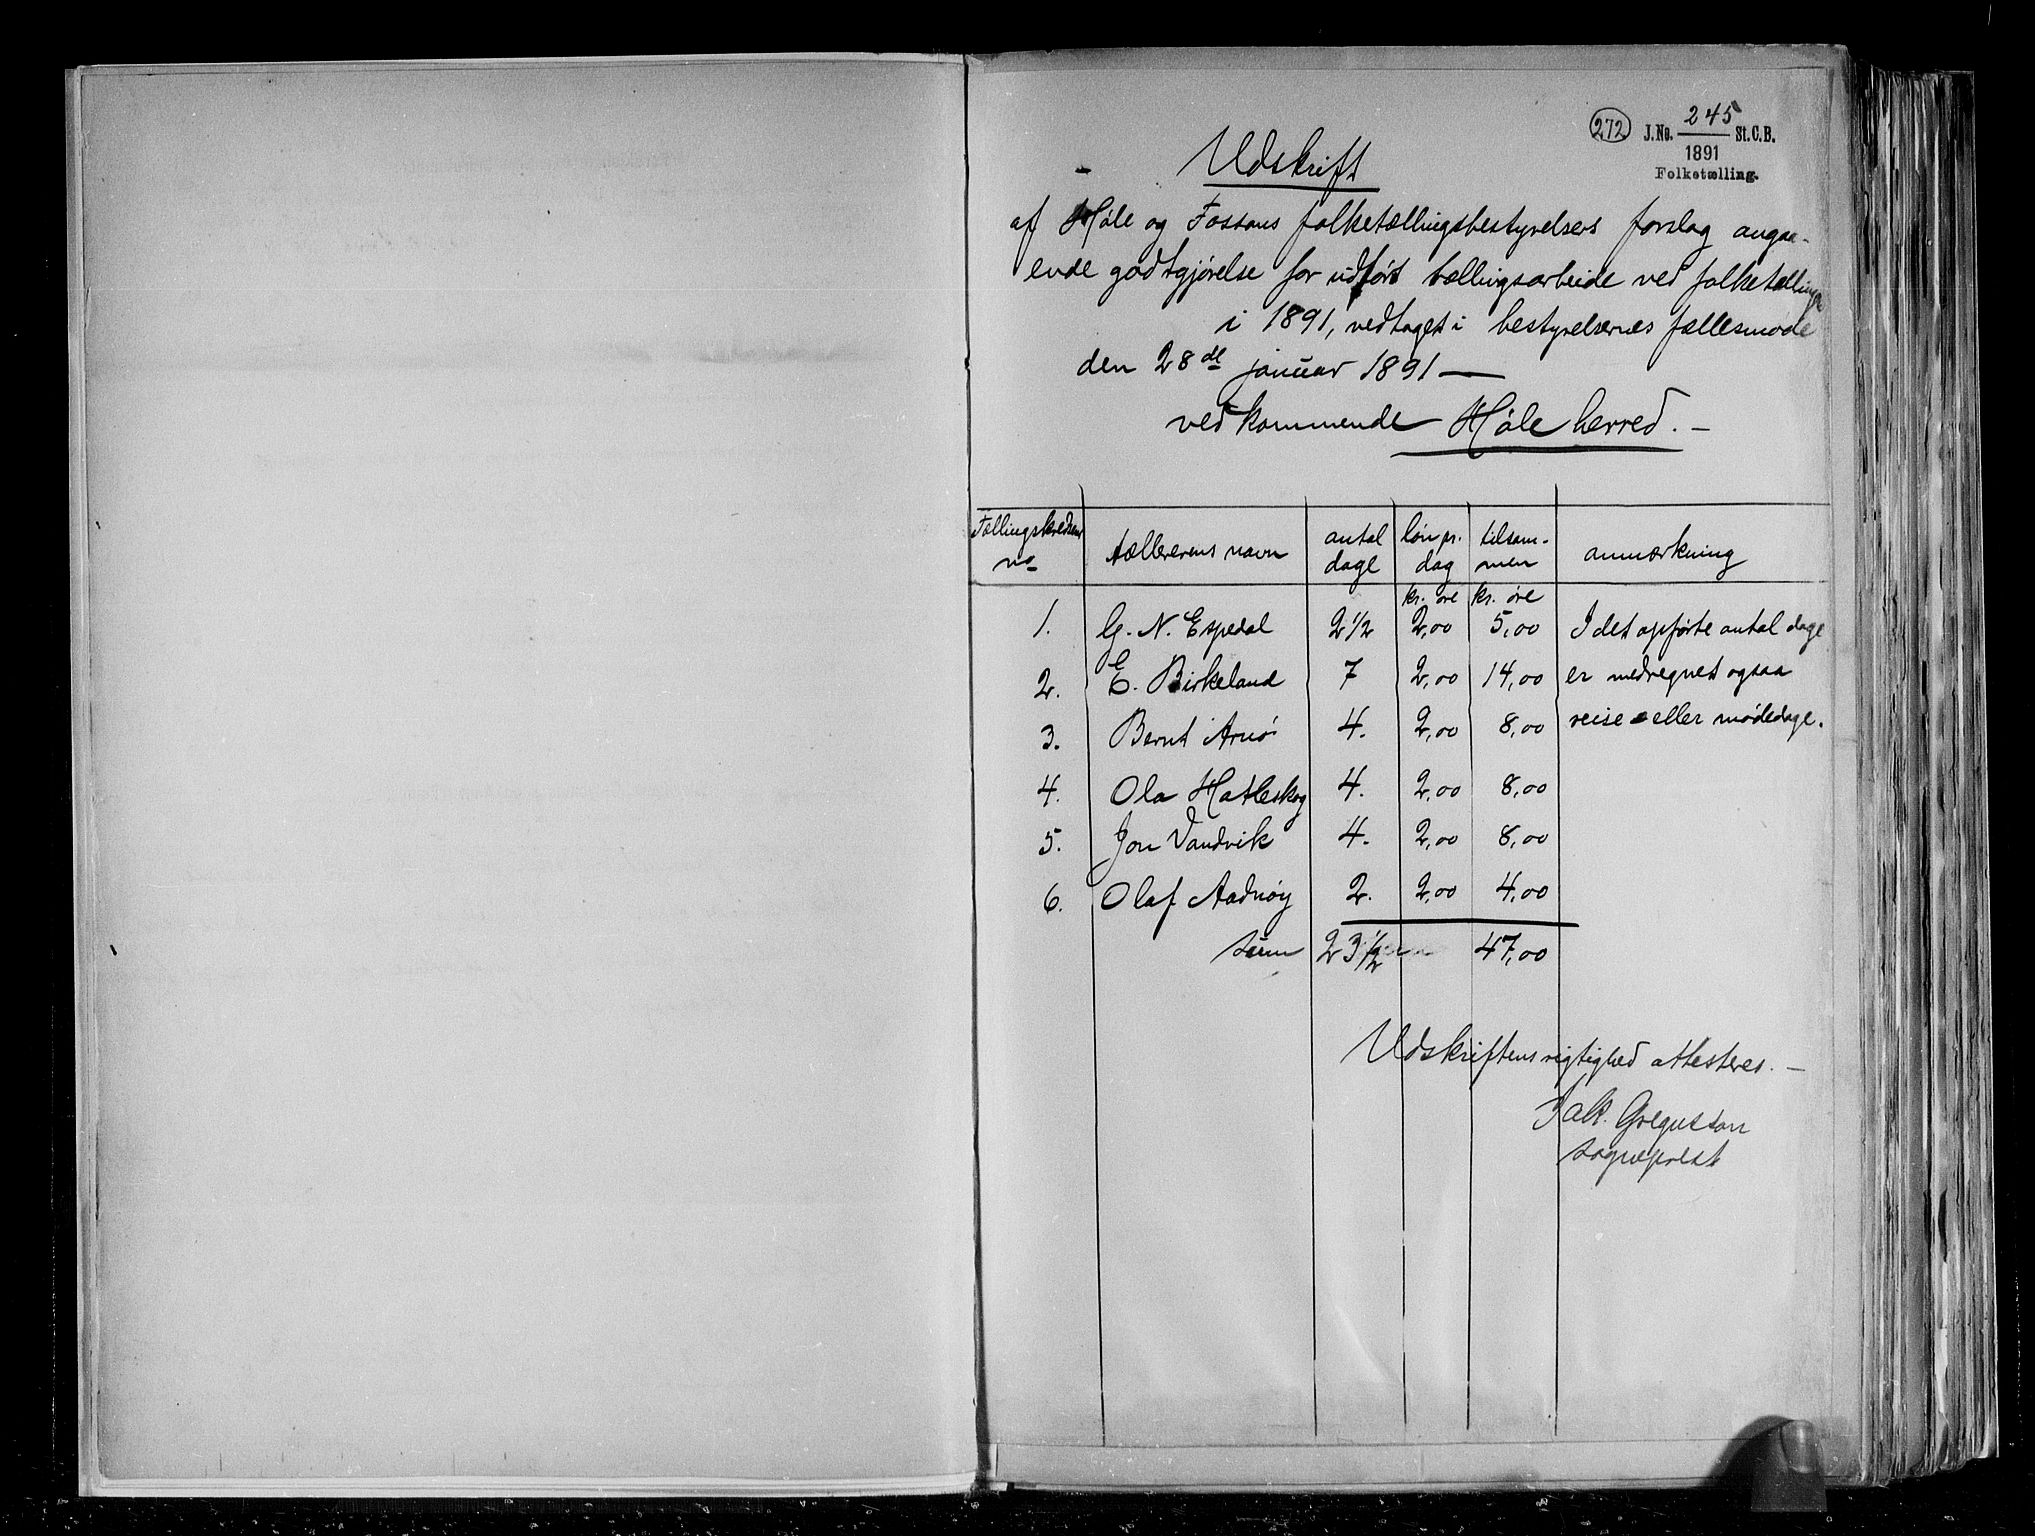 272 J. No. 245 St. C. B.
1891
Folketælling.
Udskrift
af Høle og Fossans folketællingsbestyrelsers forslag angaa-
ende godtgjörelse for udfört tællingsarbeide ved folketællingen
i 1891, vedtaget i bestyrelsernes fællesmöde
den 28de januar 1891 —
vedkommende Høle herred. —
Tællingskredsens no | tællererens navn | antal dage | løn pr. dag | tilsam-men | anmærkning
kr. øre | kr. øre
1. | G. N. Espedal | 2 1/2 | 2,00 | 5,00 | I det opførte antal dage
2. | E. Birkeland | 7 | 2,00 | 14,00 | er medregnet ogsaa
3. | Bernt Arnö | 4. | 2,00 | 8,00 | reise- eller mødedage.
4. | Ola Hatleskog | 4. | 2,00 | 8,00
5. | Jon Vandvik | 4. | 2,00 | 8,00
6. | Olaf Aadnöy | 2. | 2,00 | 4,00
sum | 23 1/2 | 47,00
Udskriftens rigtighed attesteres. —
Falk. Gregusson
sogneprest